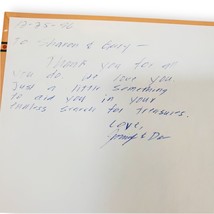 12-25-96
To Sharon & Gary –
Thank you for all
you do. We love you
Just a little something
to aid you in your
endless search for treasures.
Love,
& Don